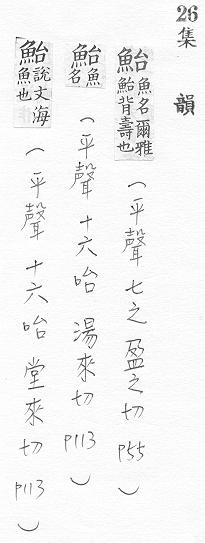 26 集 韻
鮐 魚名爾雅鮐背壽也 (平聲 七之 盈之切 P55)
鮐 魚名 (平聲 十六咍 湯來切 P113)
鮐 說文海魚也 (平聲 十六咍 堂來切 P113)